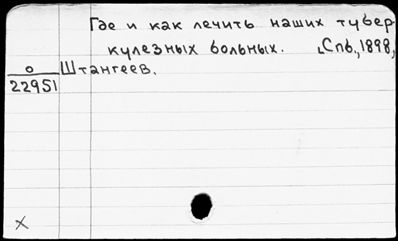 Где и как лечить наших тубер-
кулезных больных. Спб., 1898,
о Штангеев.
22951
х